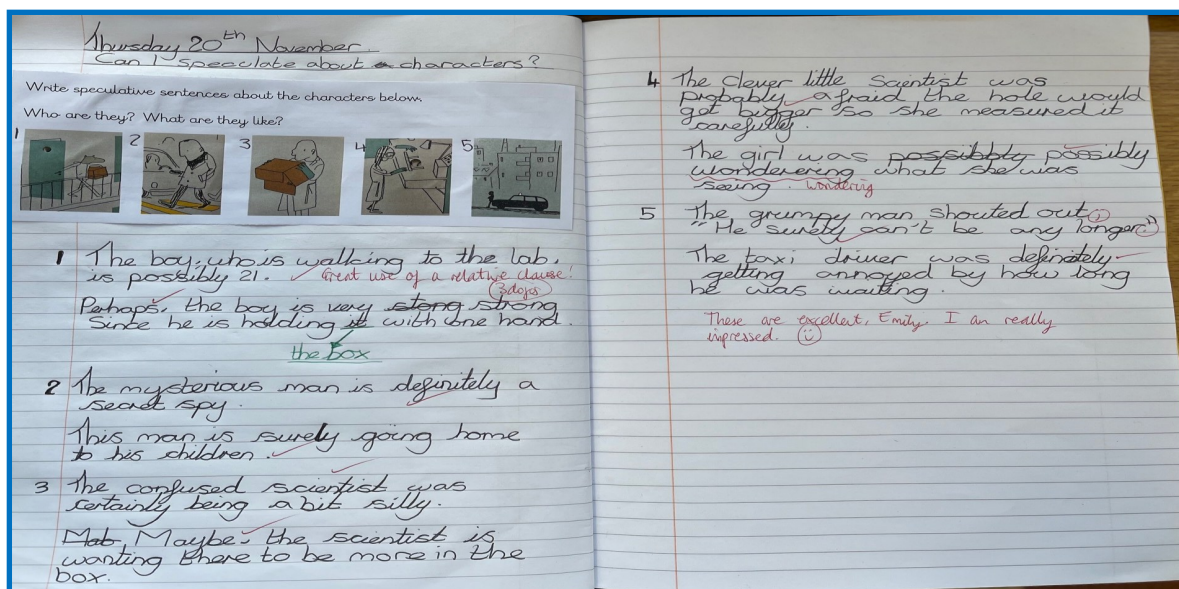 Thursday 20th November.
Can I speculate about a characters?
Write speculative sentences about the characters below.
Who are they? What are they like?
1 2 3 4 5
1 The boy, who is walking to the lab,
is possibly 21. Great use of a relative clause!
3 dojos
Perhaps, the boy is very stong strong
Since he is holding it with one hand.
the box
2 The mysterious man is definitely a
secret spy.
This man is surely going home
to his children.
3 The confused scientist was
certainly being a bit silly.
Mab, Maybe, the scientist is
wanting there to be more in the
box.
4 The clever little scientist was
probably afraid the hole would
get bigger so she measured it
carefully.
The girl was possibbly possibly
wonderering what she was
seeing. wondering
5 The grumpy man shouted out,
"He surely can't be any longer."
The taxi driver was definately
getting annoyed by how long
he was waiting.
These are excellent, Emily. I am really
impressed.